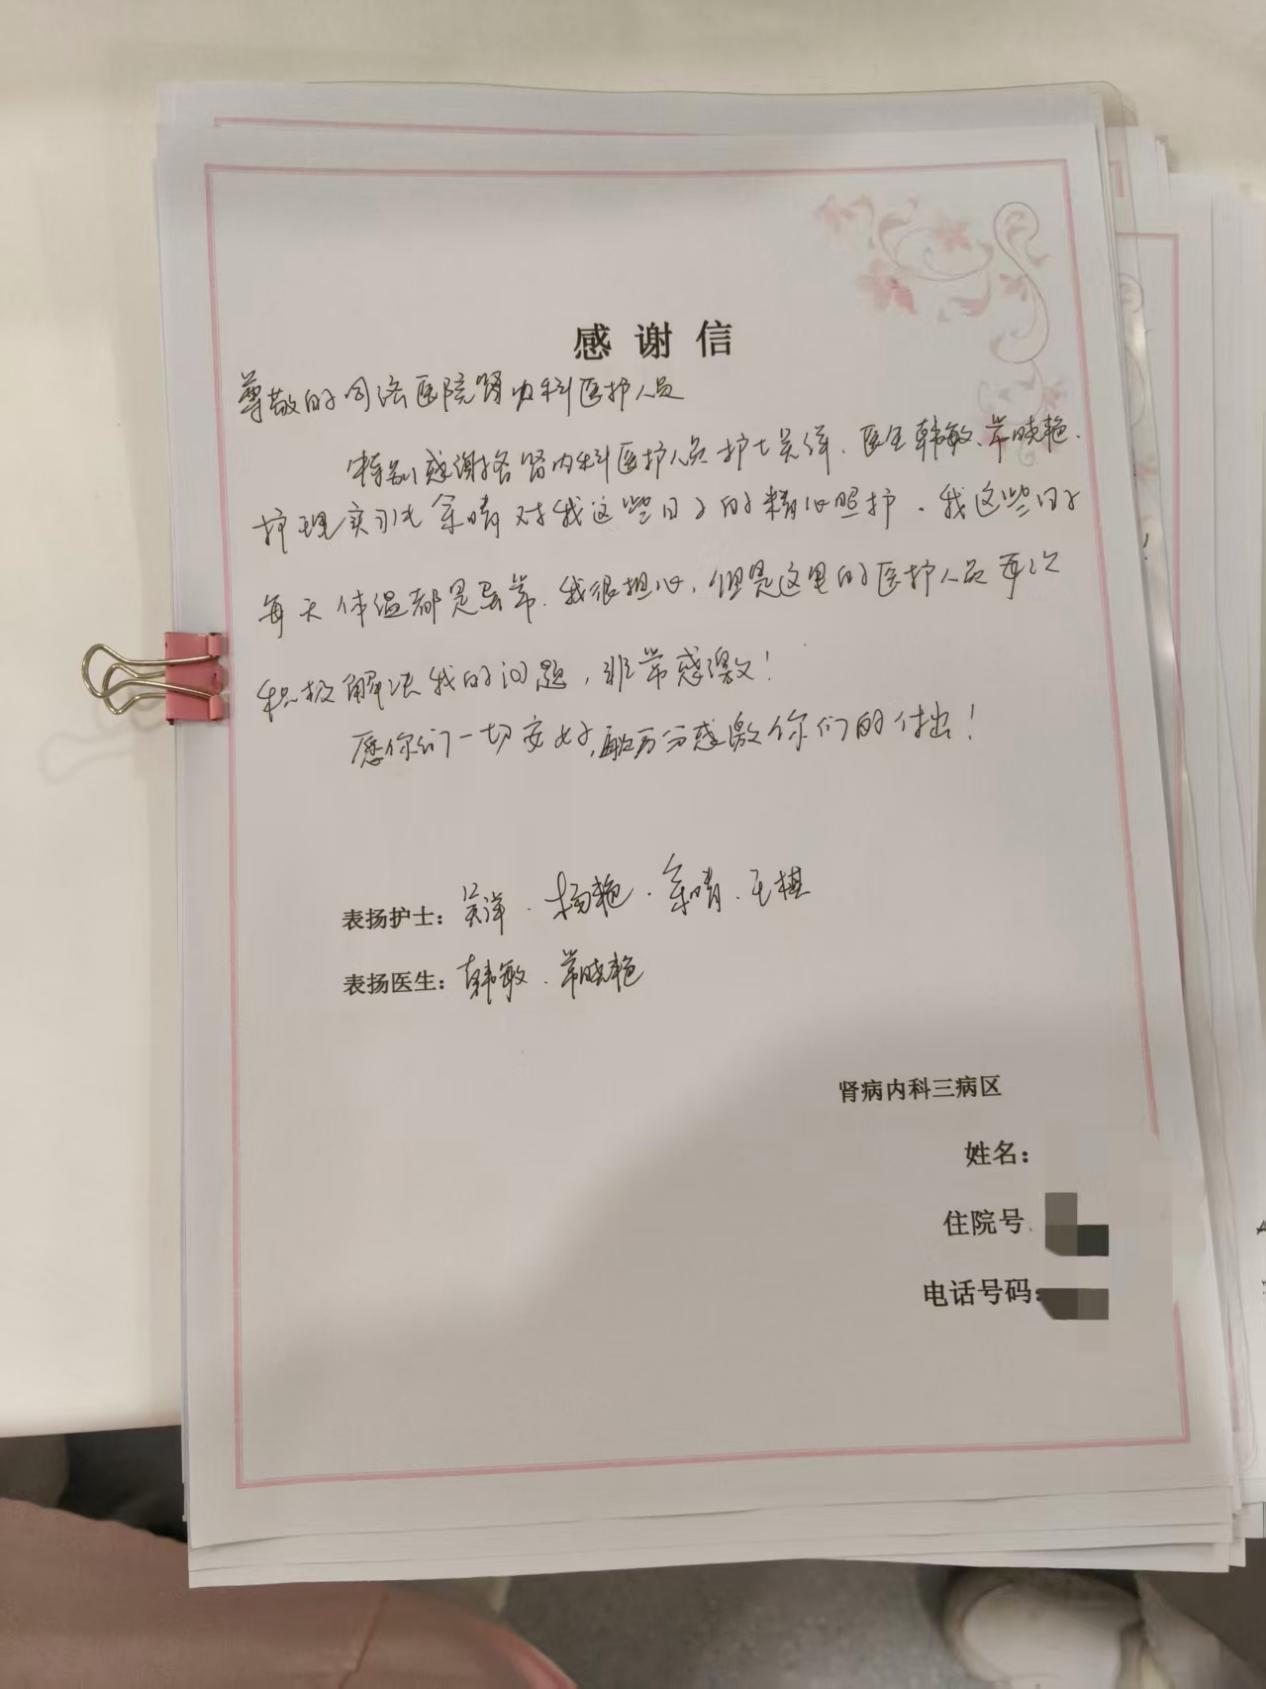 感谢信
尊敬的同济医院肾内科医护人员
特别感谢 肾内科医护人员护士吴洋、医生韩敏、常晓艳、
护理实习生余晴对我这些日子的精心照护。我这些日子
每天体温都是异常、我很担心,但是这里的医护人员每次
积极解决我的问题,非常感激!
愿你们一切安好, 万分感激你们的付出!
表扬护士:吴洋、杨艳、余晴、王棋
表扬医生:韩敏、常晓艳
肾病内科三病区
姓名:
住院号
电话号码: